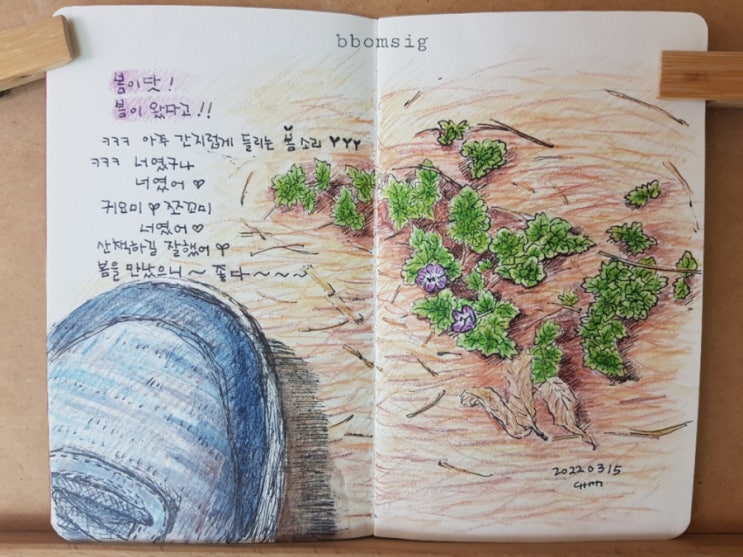 bbomsig
봄이닷!
봄이 왔다고!!
ㅋㅋㅋ 아주 간지럽게 들리는 봄소리
ㅋㅋㅋ 너였구나
너였어 ♡
귀요미 ♡ 쪼꼬미
너였어 ♡
산책하길 잘했어 ♡
봄을 만났으니~ 좋다~~~~
20220315